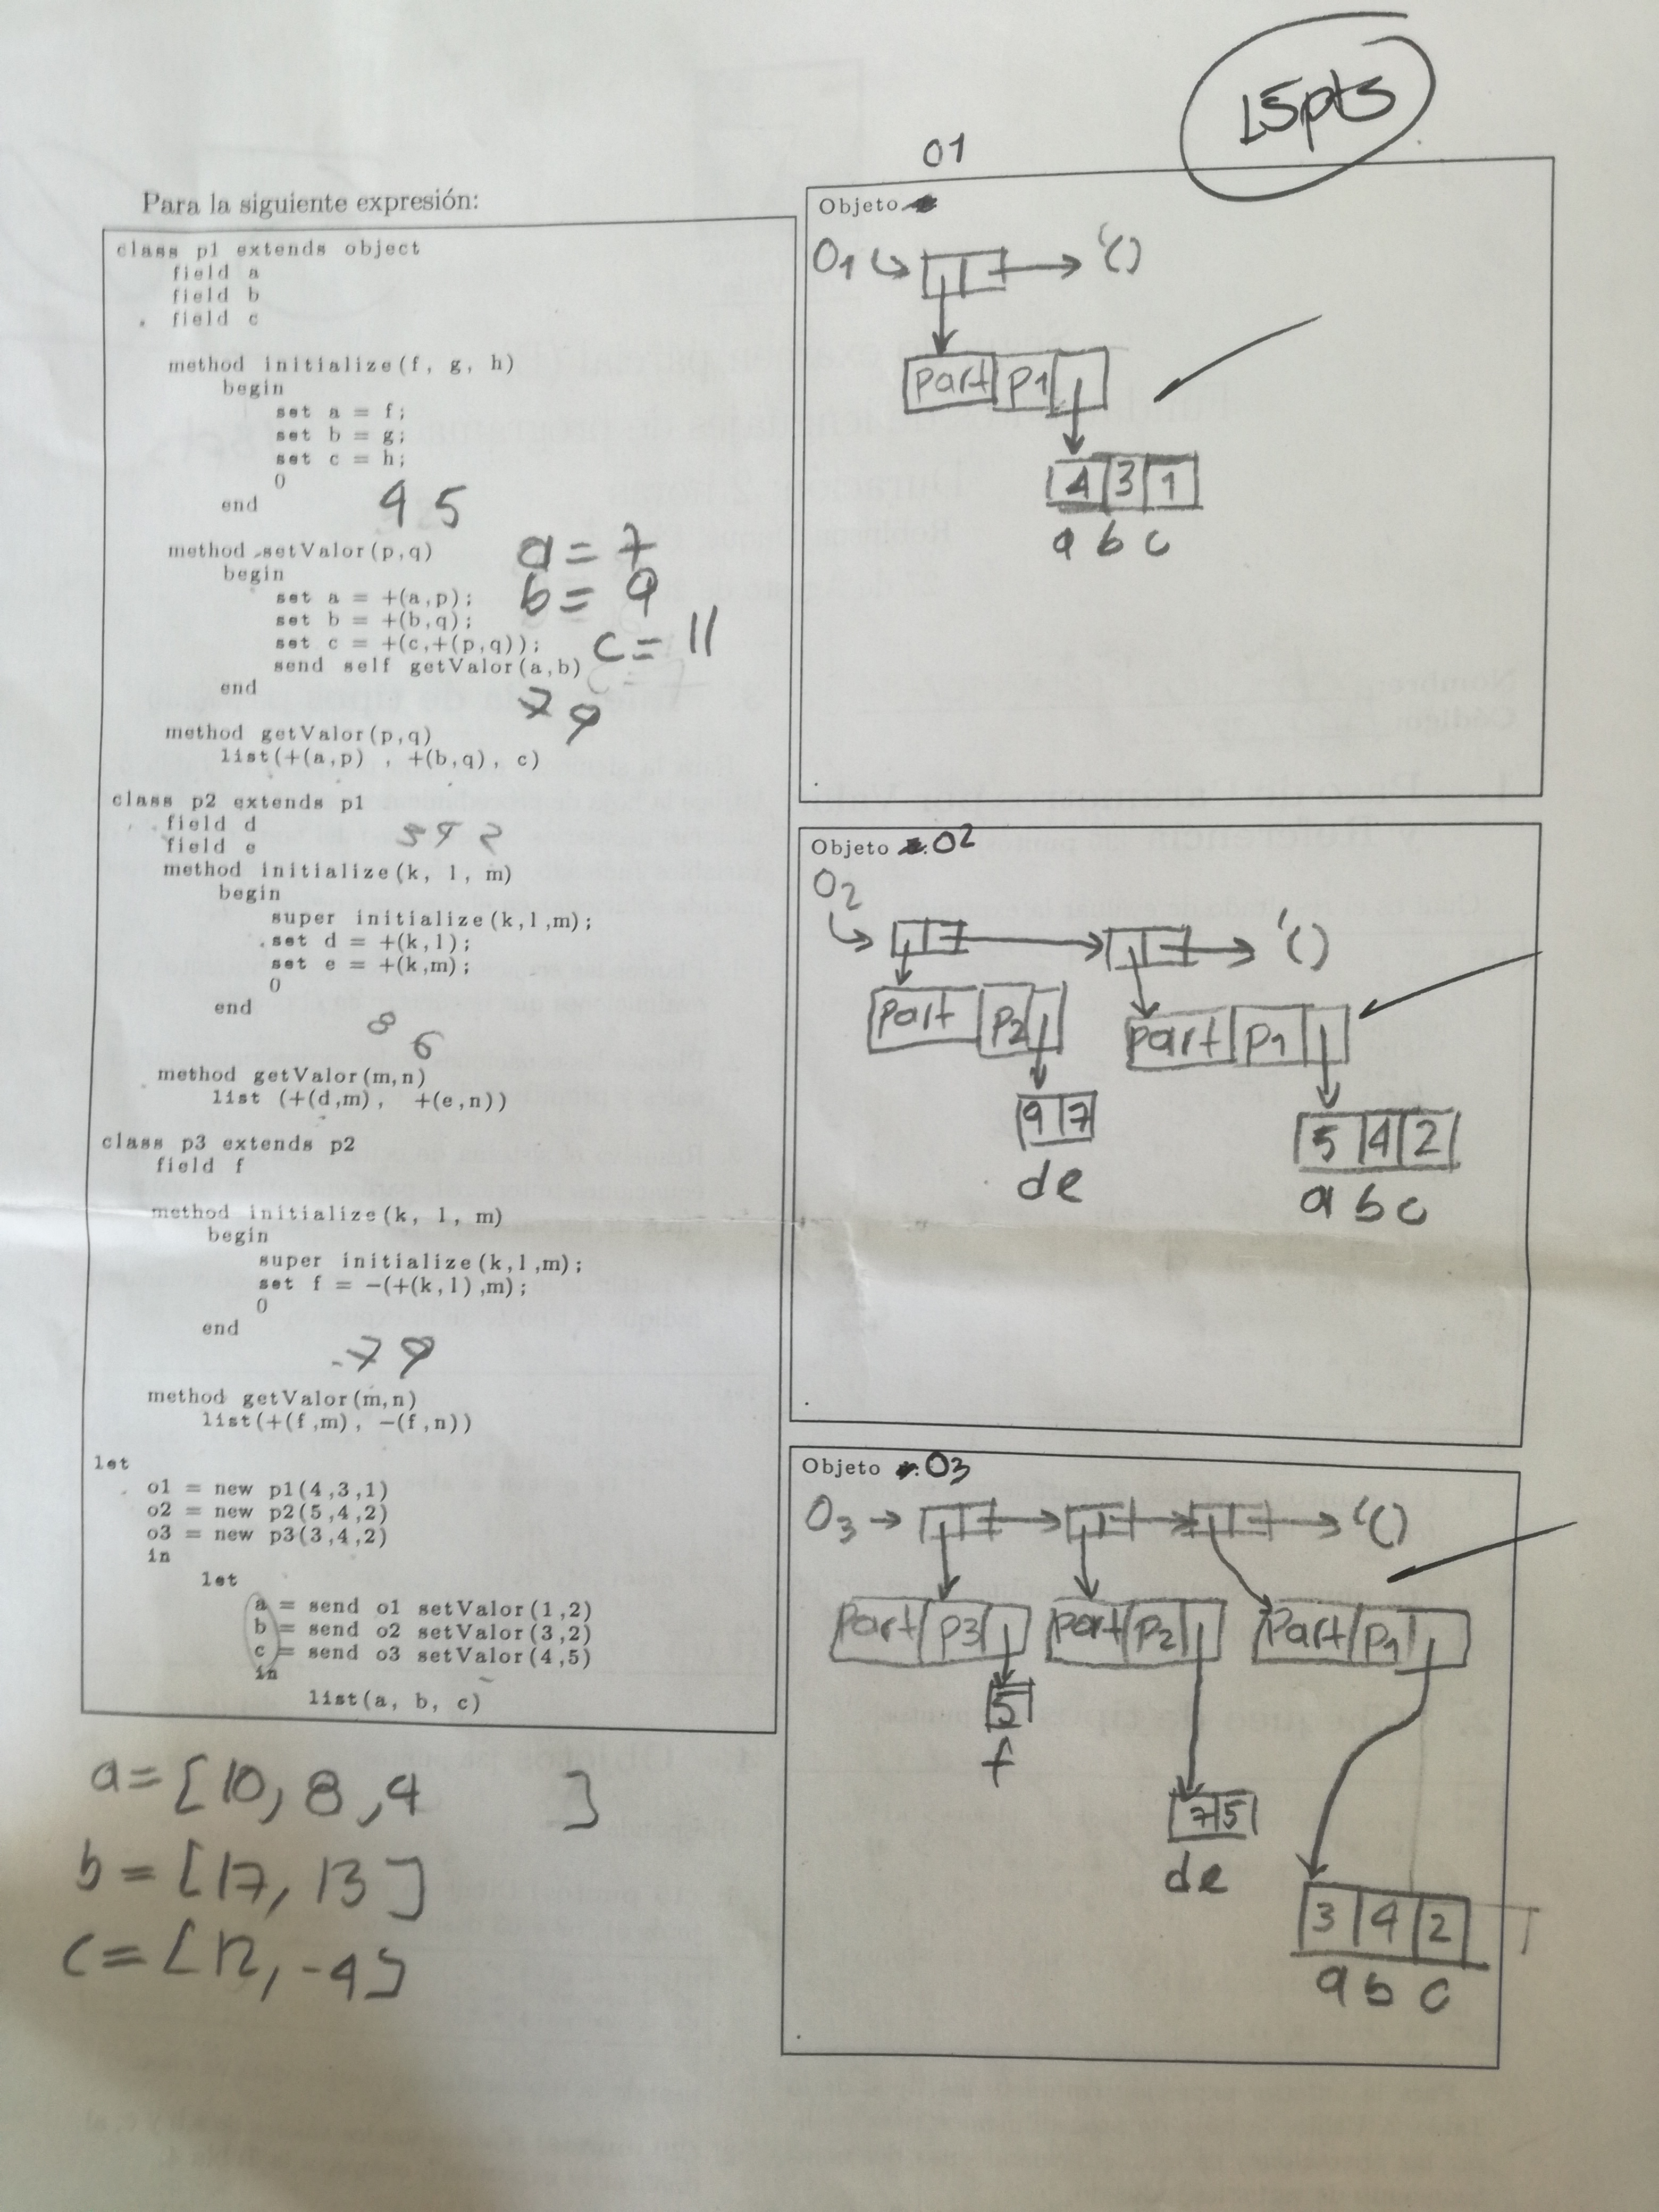 15pts
Para la siguiente expresión:
class p1 extends object
field a
field b
field c
method initialize(f, g, h)
begin
set a = f;
set b = g;
set c = h;
0
end
4 5
method setValor(p,q)
begin
set a = +(a,p);
set b = +(b,q);
set c = +(c,+(p,q));
send self getValor(a,b)
end
a = 7
b = 9
c = 11
7 9
method getValor(p,q)
list(+(a,p) , +(b,q), c)
class p2 extends p1
field d
field e
method initialize(k, l, m)
begin
super initialize(k,l,m);
set d = +(k,l);
set e = +(k,m);
0
end
8 6
method getValor(m,n)
list (+(d,m), +(e,n))
class p3 extends p2
field f
method initialize(k, l, m)
begin
super initialize(k,l,m);
set f = -(+(k,l),m);
0
end
7 9
method getValor(m,n)
list(+(f,m), -(f,n))
let
o1 = new p1(4,3,1)
o2 = new p2(5,4,2)
o3 = new p3(3,4,2)
in
let
a = send o1 setValor(1,2)
b = send o2 setValor(3,2)
c = send o3 setValor(4,5)
in
list(a, b, c)
a=[10, 8, 4 ]
b=[17, 13]
c=[12, -4]
O1
Objeto
O1 '()
Part p1
4 3 1
a b c
Objeto O2
O2 '()
Part p2 Part p1
9 7
d e
5 4 2
a b c
Objeto O3
O3 '()
Part p3 Part p2 Part p1
5
f
7 5
d e
3 4 2
a b c